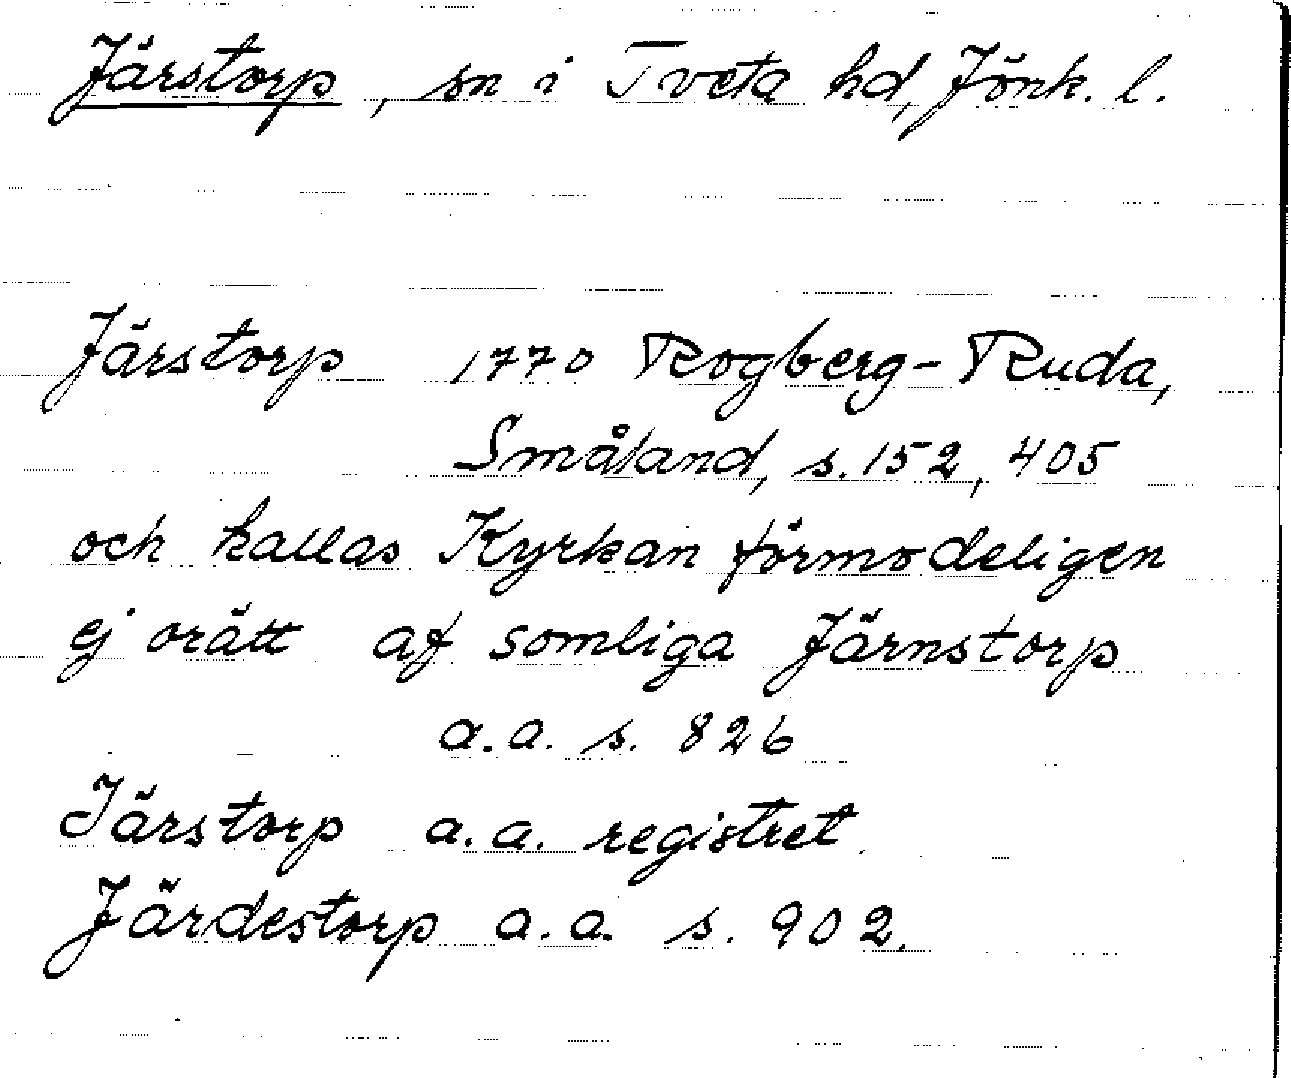 Järstorp, sn i Tveta hd, Jönk. l.
Järstorp 1770 Rogberg-Ruda,
Småland, s. 152, 405
och kallas Kyrkan förmodeligen
ej orätt af somliga Järnstorp
a.a. s. 826
Järstorp a.a. registret
Järdestorp a.a. s. 902.